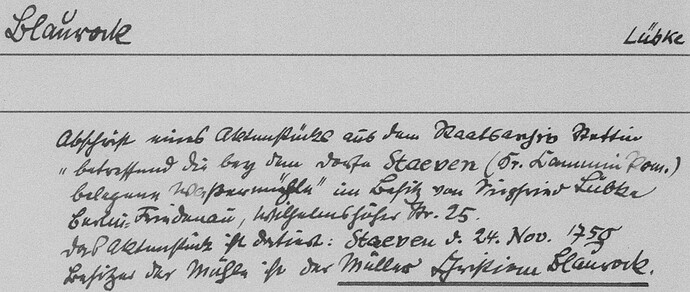 Blaurock Lübke
Abschrift eines Aktenstücks aus dem Staatsarchiv Stettin
„betreffend die bey dem Dorfe Staeven (Kr. Cammin Pom.)
belegene Waßermühle" im Besitz von Siegfried Lübke
Berlin-Friedenau, Wilhelmshöher Str. 25.
Das Aktenstück ist datiert: Staeven d. 24. Nov. 1759
Besitzer der Mühle ist der Müller Christian Blaurock.